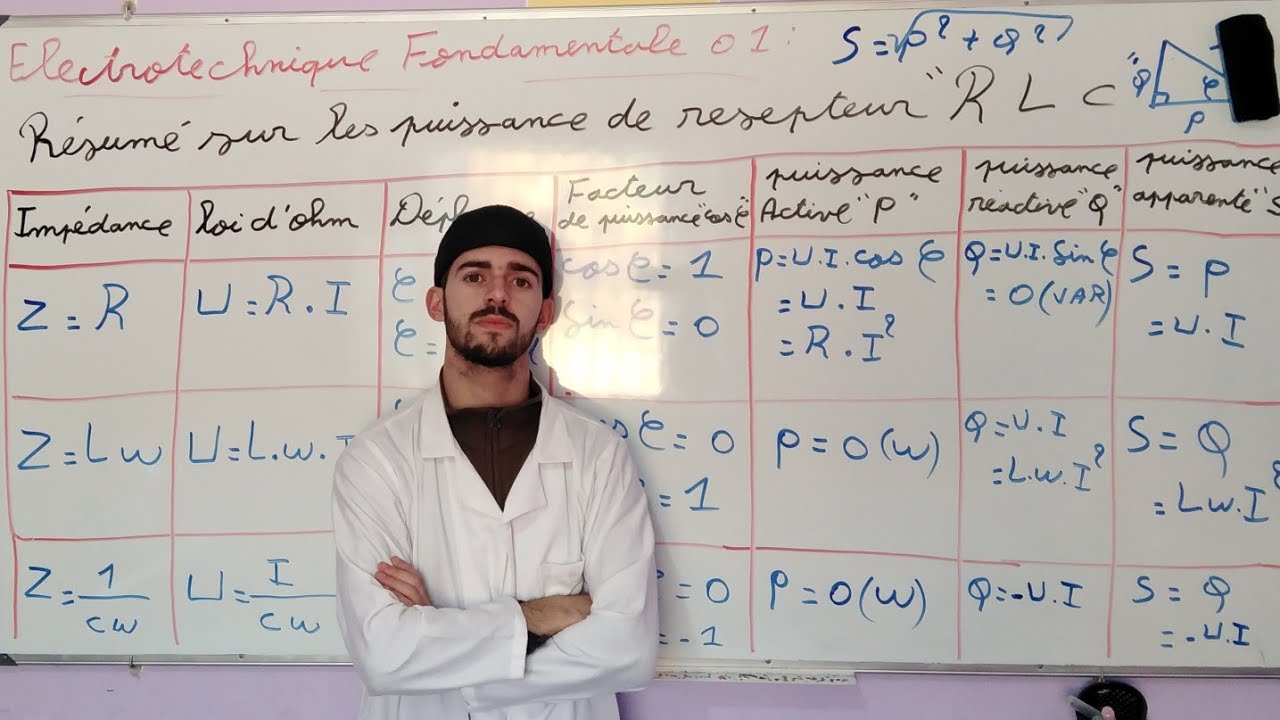 Electrotechnique Fondamentale 01:
S=√P²+Q²
Résumé sur les puissance de resepteur "R L C"
Q φ
P
Impédance
loi d'ohm
Facteur
de puissance "cosφ"
puissance
Active "P"
puissance
réactive "Q"
puissance
apparente "S
Z=R
U=R.I
φ
φ=
cosφ=1
Sinφ=0
P=U.I.cosφ
=U.I
=R.I²
Q=U.I.Sinφ
=0(VAR)
S=P
=U.I
Z=Lw
U=L.w.I
φ=0
=1
P=0(w)
Q=U.I
=L.w.I²
S=Q
=Lw.I²
Z=1/cw
U=I/cw
=0
=-1
P=0(w)
Q=-U.I
S=Q
=-U.I